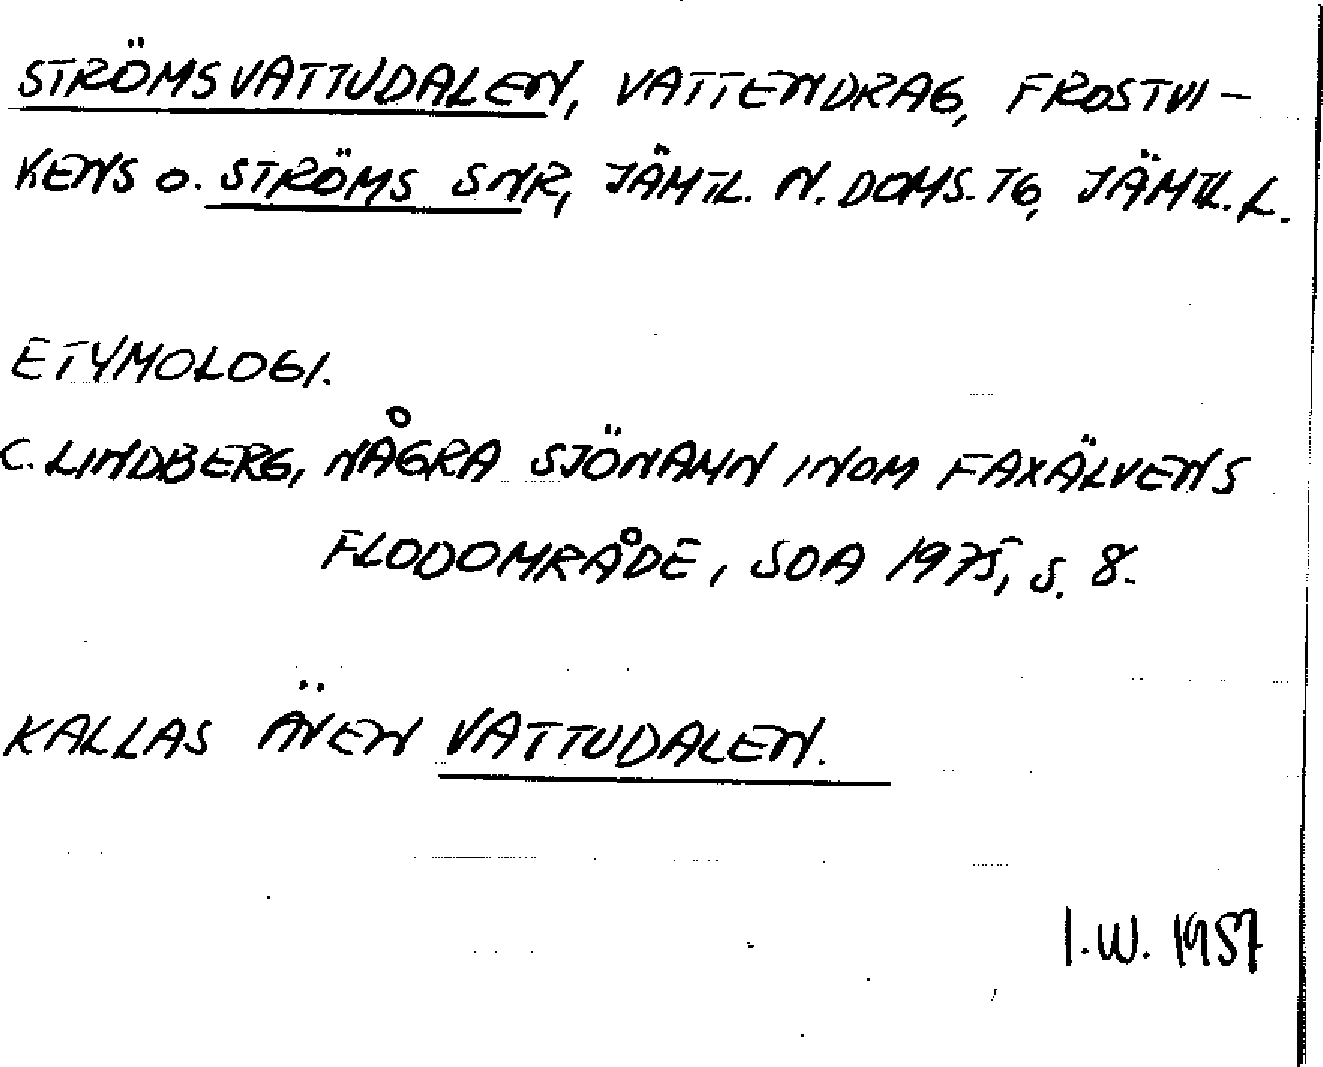 STRÖMSVATTUDALEN, VATTENDRAG, FROSTVI-
KENS O. STRÖMS SNR, JÄMTL. N. DOMS. TG, JÄMTL. L.
ETYMOLOGI.
C. LINDBERG, NÅGRA SJÖNAMN INOM FAXÄLVENS
FLODOMRÅDE, SOA 1975, S. 8.
KALLAS ÄVEN VATTUDALEN.
I.W. 1987